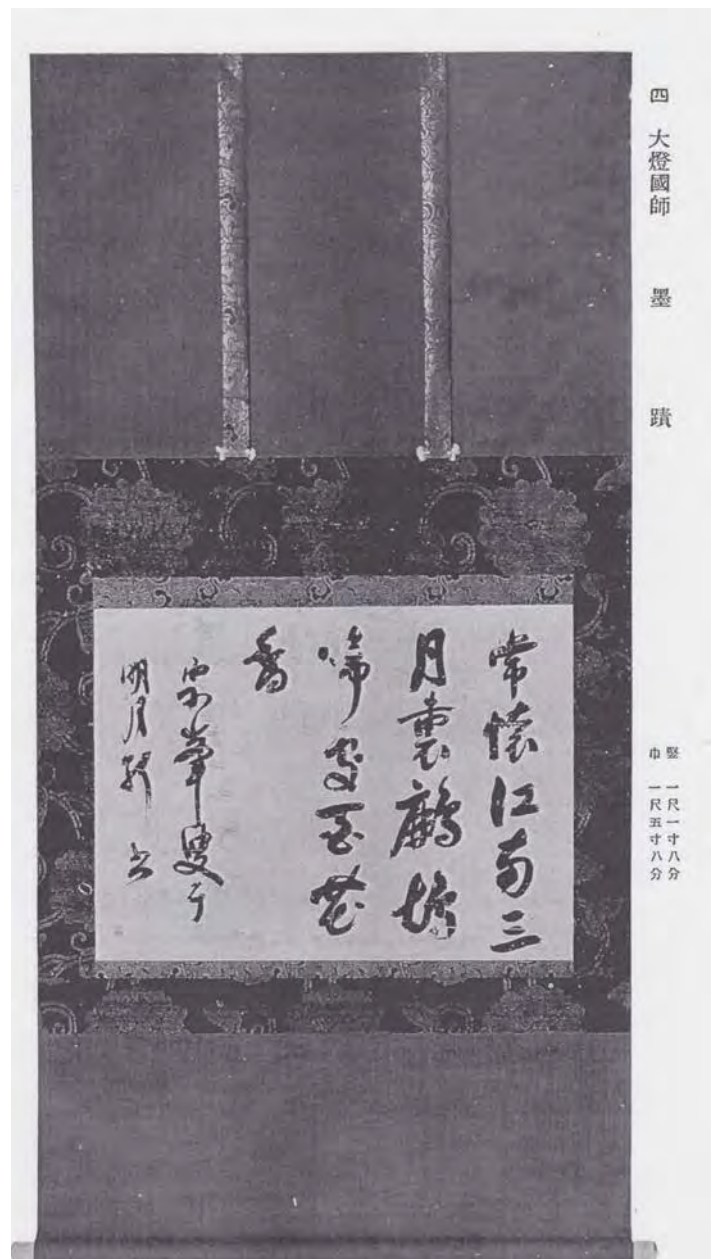 四 大燈國師 墨蹟
竪 一尺一寸八分
巾 一尺五寸八分
常憶江南三
月裏鷓鴣
啼處百花
香
宗峯叟于
明月軒書